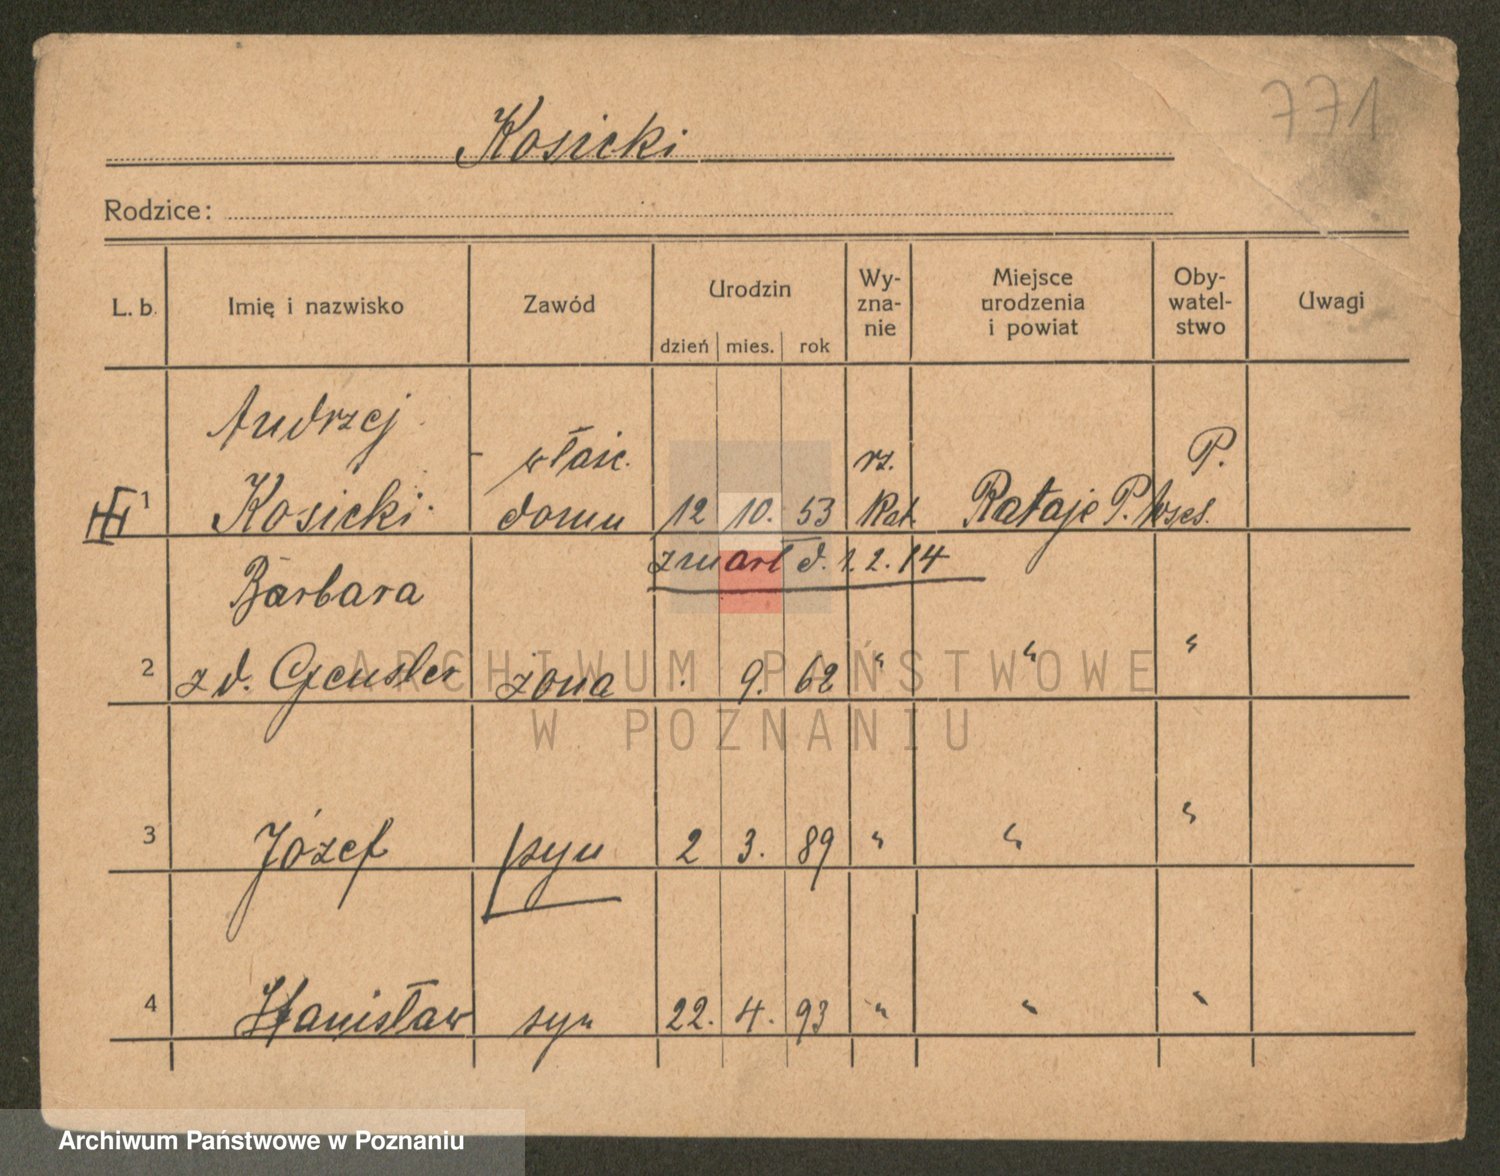 771
Kosicki
Rodzice:
L. b. Imię i nazwisko Zawód Urodzin dzień mies. rok Wy-zna-nie Miejsce urodzenia i powiat Oby-watel-stwo Uwagi
Andrzej
właśc. rz. P.
1 Kosicki domu 12 10. 53 Kat. Rataje P. Wsch.
zmarł d. 1. 2. 14
Barbara
2 z d. Gensler żona . 9. 62 " " "
3 Józef syn 2 3. 89 " " "
4 Stanisław syn 22. 4. 93 " " "
ARCHIWUM PAŃSTWOWE
W POZNANIU
Archiwum Państwowe w Poznaniu